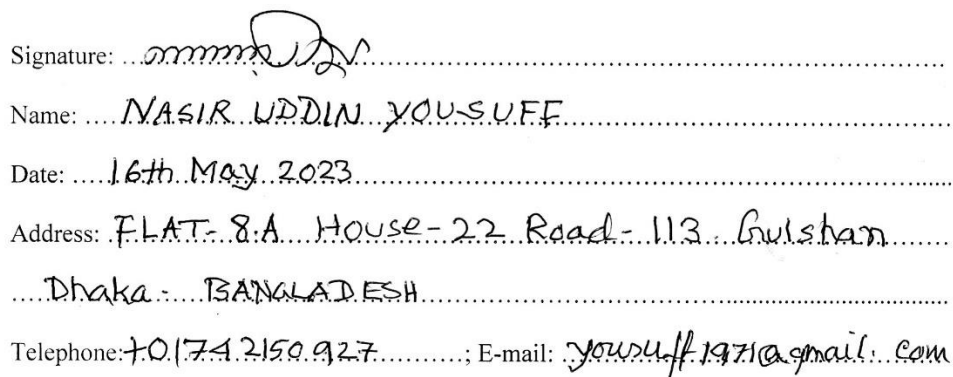 Signature:
Name: NASIR UDDIN YOUSUFF
Date: 16th May 2023
Address: FLAT-8.A House-22 Road-113 Gulshan
Dhaka- BANGLADESH
Telephone:+01742150927; E-mail: yousuff1971@gmail.com